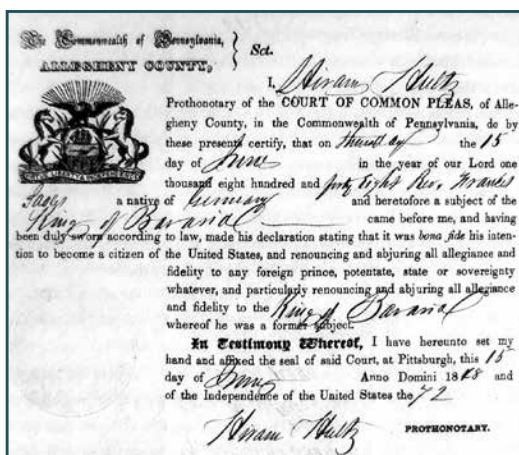 The Commonwealth of Pennsylvania,
ALLEGHENY COUNTY,
Sct.
I, Hiram Hultz
Prothonotary of the COURT OF COMMON PLEAS, of Alle-
gheny County, in the Commonwealth of Pennsylvania, do by
these presents certify, that on Thursday the 15
day of June in the year of our Lord one
thousand eight hundred and forty Eight Rev. Francis
a native of Germany and heretofore a subject of the
King of Bavaria came before me, and having
been duly sworn according to law, made his declaration stating that it was bona fide his inten-
tion to become a citizen of the United States, and renouncing and abjuring all allegiance and
fidelity to any foreign prince, potentate, state or sovereignty
whatever, and particularly renouncing and abjuring all allegiance
and fidelity to the King of Bavaria
whereof he was a former subject.
In Testimony Whereof, I have hereunto set my
hand and affixed the seal of said Court, at Pittsburgh, this 15
day of June Anno Domini 1848 and
of the Independence of the United States the 72
Hiram Hultz PROTHONOTARY.